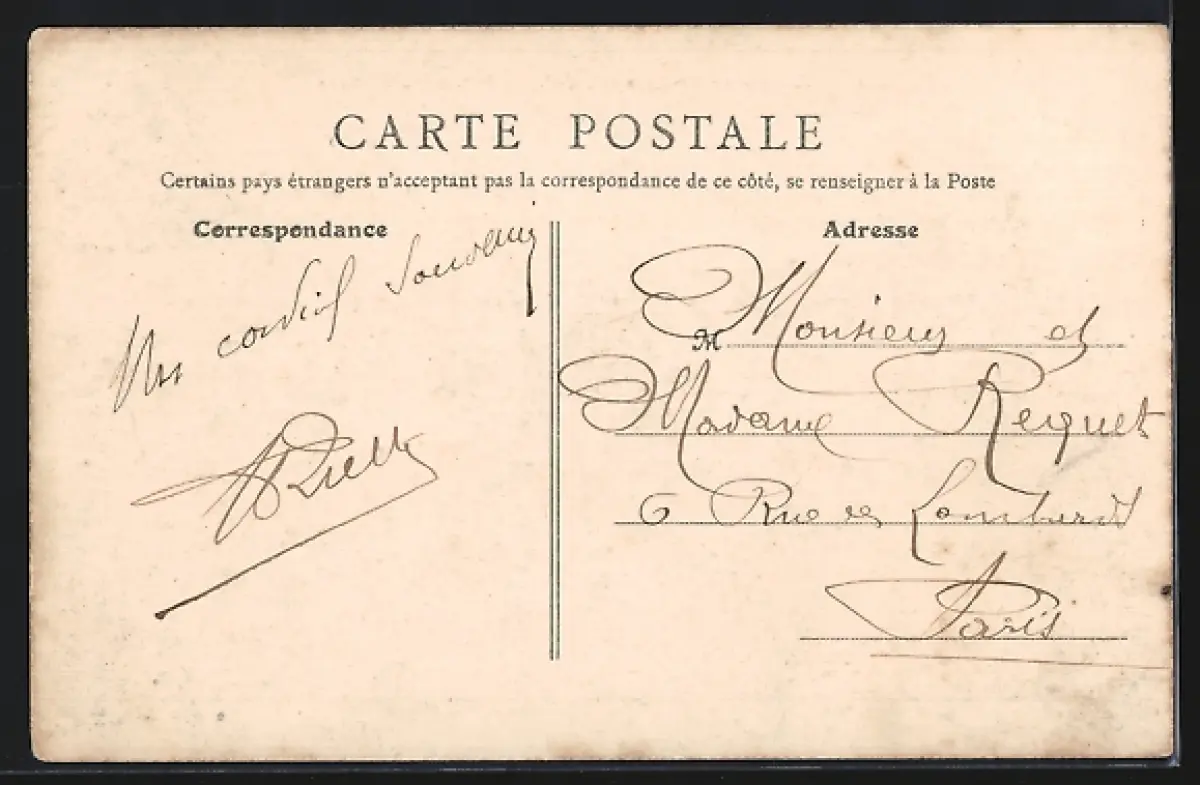 CARTE POSTALE
Certains pays étrangers n'acceptant pas la correspondance de ce côté, se renseigner à la Poste
Correspondance
Adresse
cordial Souvenir
M Monsieur et
Madame Requet
6 Rue des Lombards
Paris